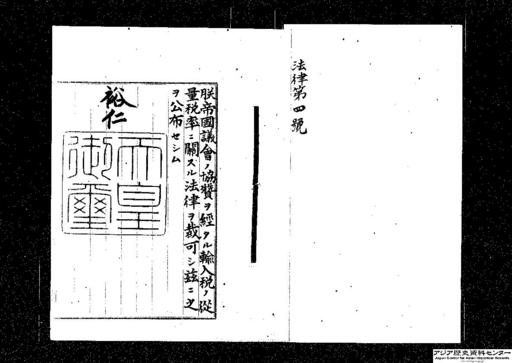 法律第四號
朕帝國議會ノ協贊ヲ經タル輸入税ノ從
量税率ニ關スル法律ヲ裁可シ茲ニ之
ヲ公布セシム
裕仁
天皇
御璽
アジア歴史資料センター
Japan Center for Asian Historical Records